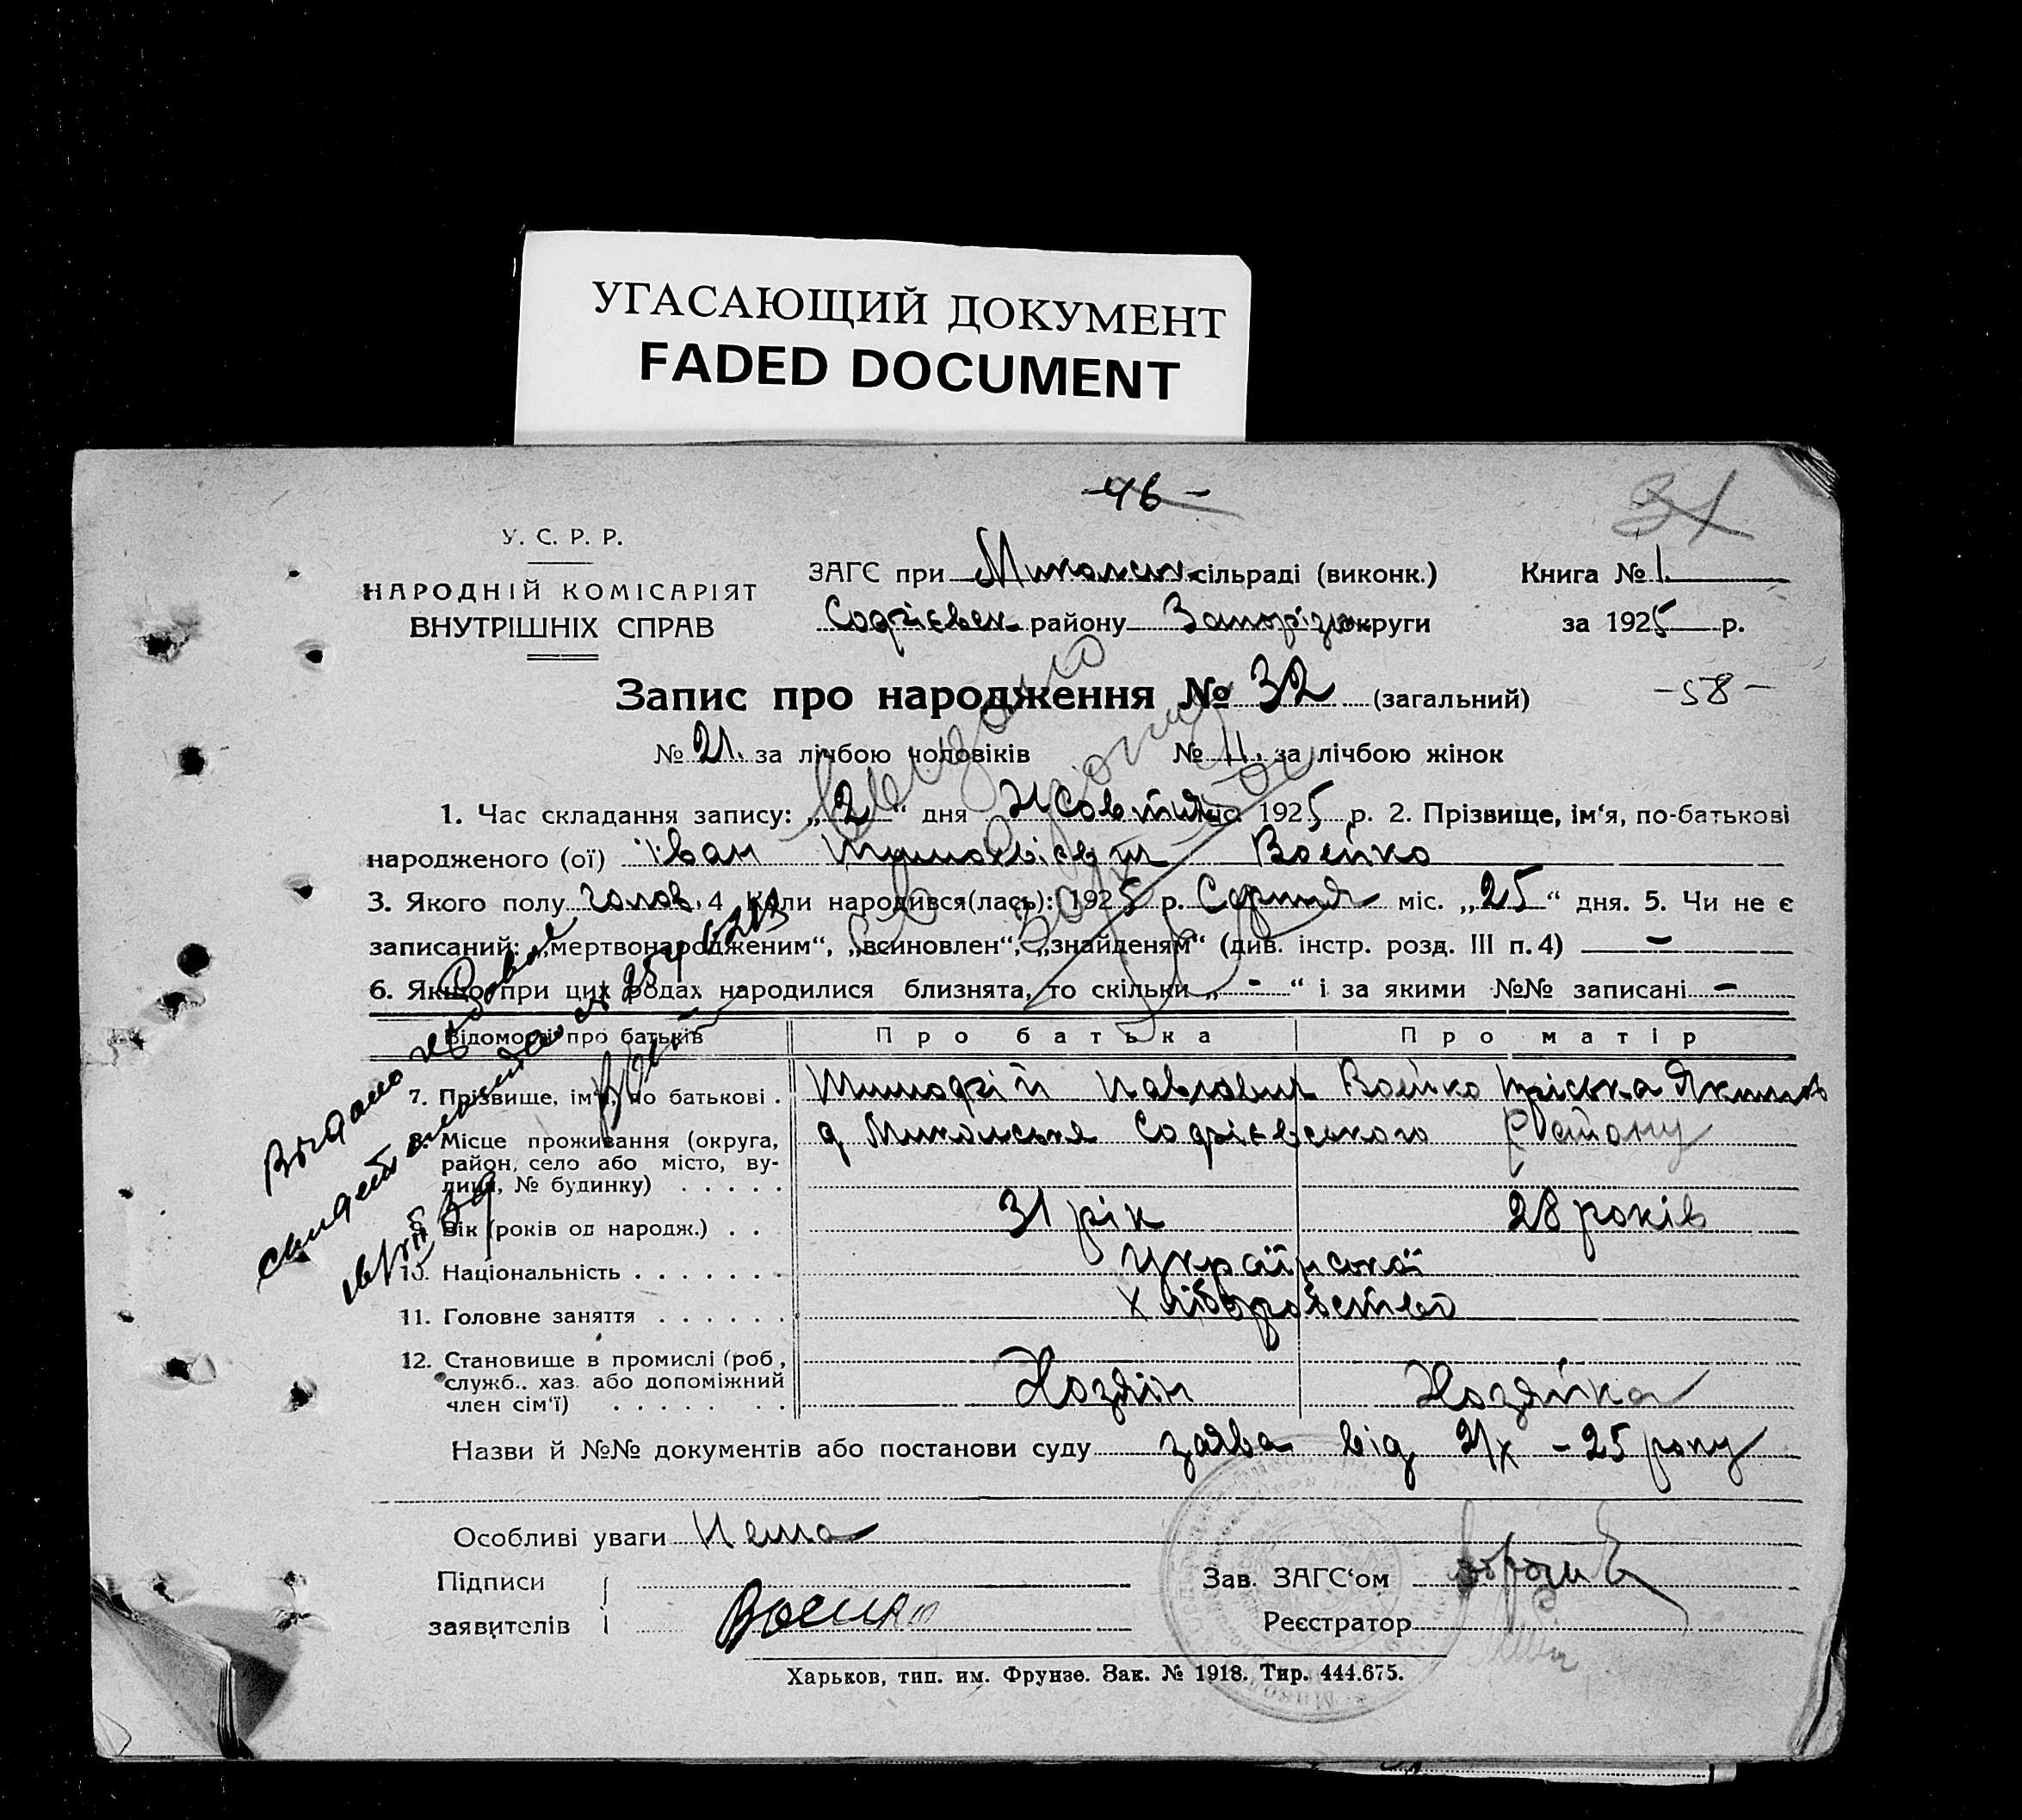 УГАСАЮЩИЙ ДОКУМЕНТ
FADED DOCUMENT
-46-
31
У. С. Р. Р.
НАРОДНІЙ КОМІСАРІЯТ
ВНУТРІШНІХ СПРАВ
ЗАГС при Микольск. сільраді (виконк.) Книга № 1
Софієвск району Запоріз. округи за 1925 р.
Запис про народження № 32 (загальний)
-58-
№ 21. за лічбою чоловіків № 11. за лічбою жінок
1. Час складання запису: „2“ дня Жовтня міс. 1925 р. 2. Прізвище, ім‘я, по-батькові
народженого (ої) Іван Тимохвієвич Воєйко
3. Якого полу чолов. 4 Коли народився(лась): 1925 р. Серпня міс. „25“ дня. 5. Чи не є
записаний: „мертвонародженим“, „всиновлен“, „знайденям“ (див. інстр. розд. III п. 4) -
6. Якщо при цих родах народилися близнята, то скільки „-“ і за якими №№ записані -
Відомості про батьків Про батька Про матір
7. Прізвище, ім‘я, по батькові . Тимофій Павлович Воєйко Пріська Якимів
8. Місце проживання (округа, район, село або місто, вулиця, № будинку) . . . . . Микольське Софієвського
9. Вік (років од народж.) . . 31 рік 28 років
10. Національність . . . . . . . Української
11. Головне заняття . . . . . . Хліборобство
12. Становище в промислі (роб, служб.. хаз. або допоміжний член сім‘ї) . . . . . . . Хозяїн Хозяйка
Назви й №№ документів або постанови суду заява від 2/X - 25 року
Особливі уваги Нема
Підписи Зав. ЗАГС‘ом
заявителів Воейко Реєстратор
Харьков, тип. им. Фрунзе. Зак. № 1918. Тир. 444.675.
Видано